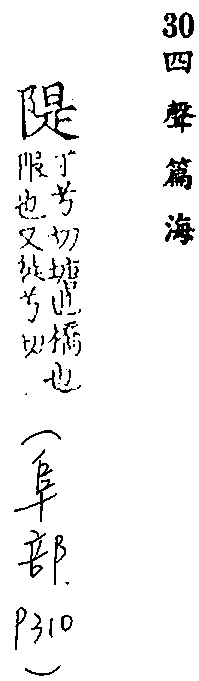 30 四聲篇海
隄
丁兮切塘也橋也
限也又徒兮切
(阜部. P310)